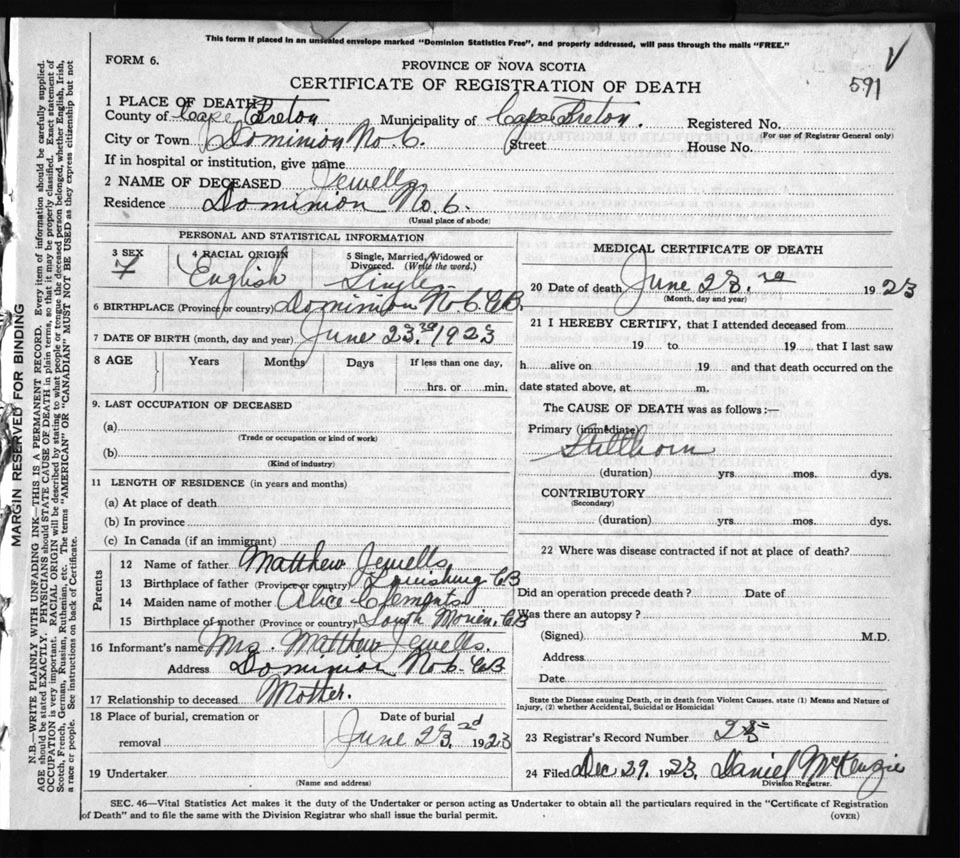 This form if placed in an unsealed envelope marked "Dominion Statistics Free", and properly addressed, will pass through the mails "FREE."
FORM 6.
PROVINCE OF NOVA SCOTIA
CERTIFICATE OF REGISTRATION OF DEATH
591
1 PLACE OF DEATH
County of Cape Breton Municipality of Cape Breton. Registered No.
(For use of Registrar General only)
City or Town Dominion No. 6. Street House No.
If in hospital or institution, give name
2 NAME OF DECEASED Jewells
Residence Dominion No. 6.
(Usual place of abode)
PERSONAL AND STATISTICAL INFORMATION
3 SEX 4 RACIAL ORIGIN 5 Single, Married, Widowed or Divorced. (Write the word.)
F English Single
6 BIRTHPLACE (Province or country) Dominion No. 6 CB.
7 DATE OF BIRTH (month, day and year) June 23rd 1923
8 AGE Years Months Days If less than one day,
hrs. or min.
9. LAST OCCUPATION OF DECEASED
(a)
(Trade or occupation or kind of work)
(b)
(Kind of industry)
11 LENGTH OF RESIDENCE (in years and months)
(a) At place of death
(b) In province
(c) In Canada (if an immigrant)
Parents
12 Name of father Matthew Jewells
13 Birthplace of father (Province or country) Louisburg CB
14 Maiden name of mother Alice Clements
15 Birthplace of mother (Province or country) South Morien. CB
16 Informant's name Mrs. Matthew Jewells.
Address Dominion No 6. CB
17 Relationship to deceased Mother.
18 Place of burial, cremation or removal Date of burial
June 23rd 1923
19 Undertaker
(Name and address)
MEDICAL CERTIFICATE OF DEATH
20 Date of death June 23.rd 1923
(Month, day and year)
21 I HEREBY CERTIFY, that I attended deceased from
19 to 19 that I last saw
h alive on 19 and that death occurred on the
date stated above, at m.
The CAUSE OF DEATH was as follows:—
Primary (immediate)
Stillborn
(duration) yrs. mos. dys.
CONTRIBUTORY
(Secondary)
(duration) yrs. mos. dys.
22 Where was disease contracted if not at place of death?
Did an operation precede death? Date of
Was there an autopsy?
(Signed) M.D.
Address
Date
State the Disease causing Death, or in death from Violent Causes, state (1) Means and Nature of Injury, (2) whether Accidental, Suicidal or Homicidal
23 Registrar's Record Number
24 Filed Dec 29. 1923. Daniel McKenzie
Division Registrar.
SEC. 46—Vital Statistics Act makes it the duty of the Undertaker or person acting as Undertaker to obtain all the particulars required in the "Certificate of Registration
of Death" and to file the same with the Division Registrar who shall issue the burial permit. (OVER)
MARGIN RESERVED FOR BINDING
N.B. WRITE PLAINLY WITH UNFADING INK—THIS IS A PERMANENT RECORD. Every item of information should be carefully supplied.
AGE should be stated EXACTLY. PHYSICIANS should STATE CAUSE OF DEATH in plain terms, so that it may be properly classified. Exact statement of
OCCUPATION is very important. RACIAL ORIGIN will be described by stating to what people or tongue the deceased person belonged, whether English, Irish,
Scotch, French, German, Russian, Ruthenian, etc. The terms "AMERICAN" OR "CANADIAN" MUST NOT BE USED as they express citizenship but not
a race or people. See instructions on back of Certificate.